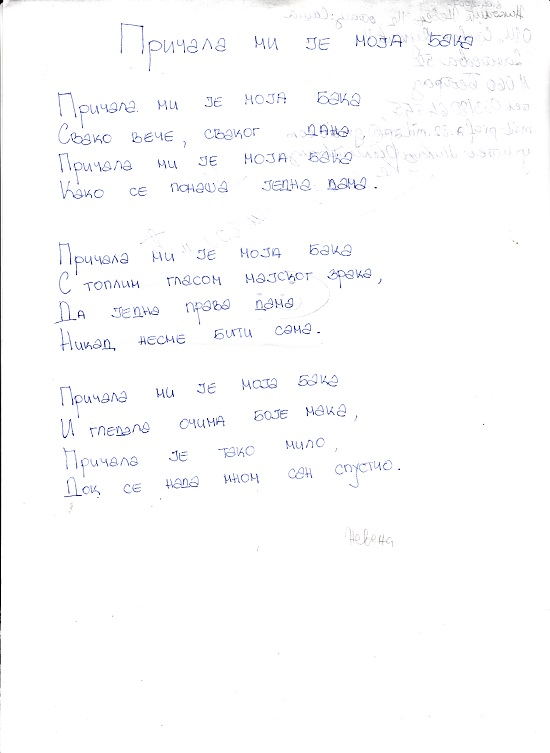 Причала ми је моја бака
Причала ми је моја бака
Свако вече, сваког дана
Причала ми је моја бака
Како се понаша једна дама.
Причала ми је моја бака
С топлим гласом мајског зрака,
Да једна права дама
Никад несме бити сама.
Причала ми је моја бака
И гледала очима боје мака,
Причала је тако мило,
Док се нада мном сан спустио.
Невена